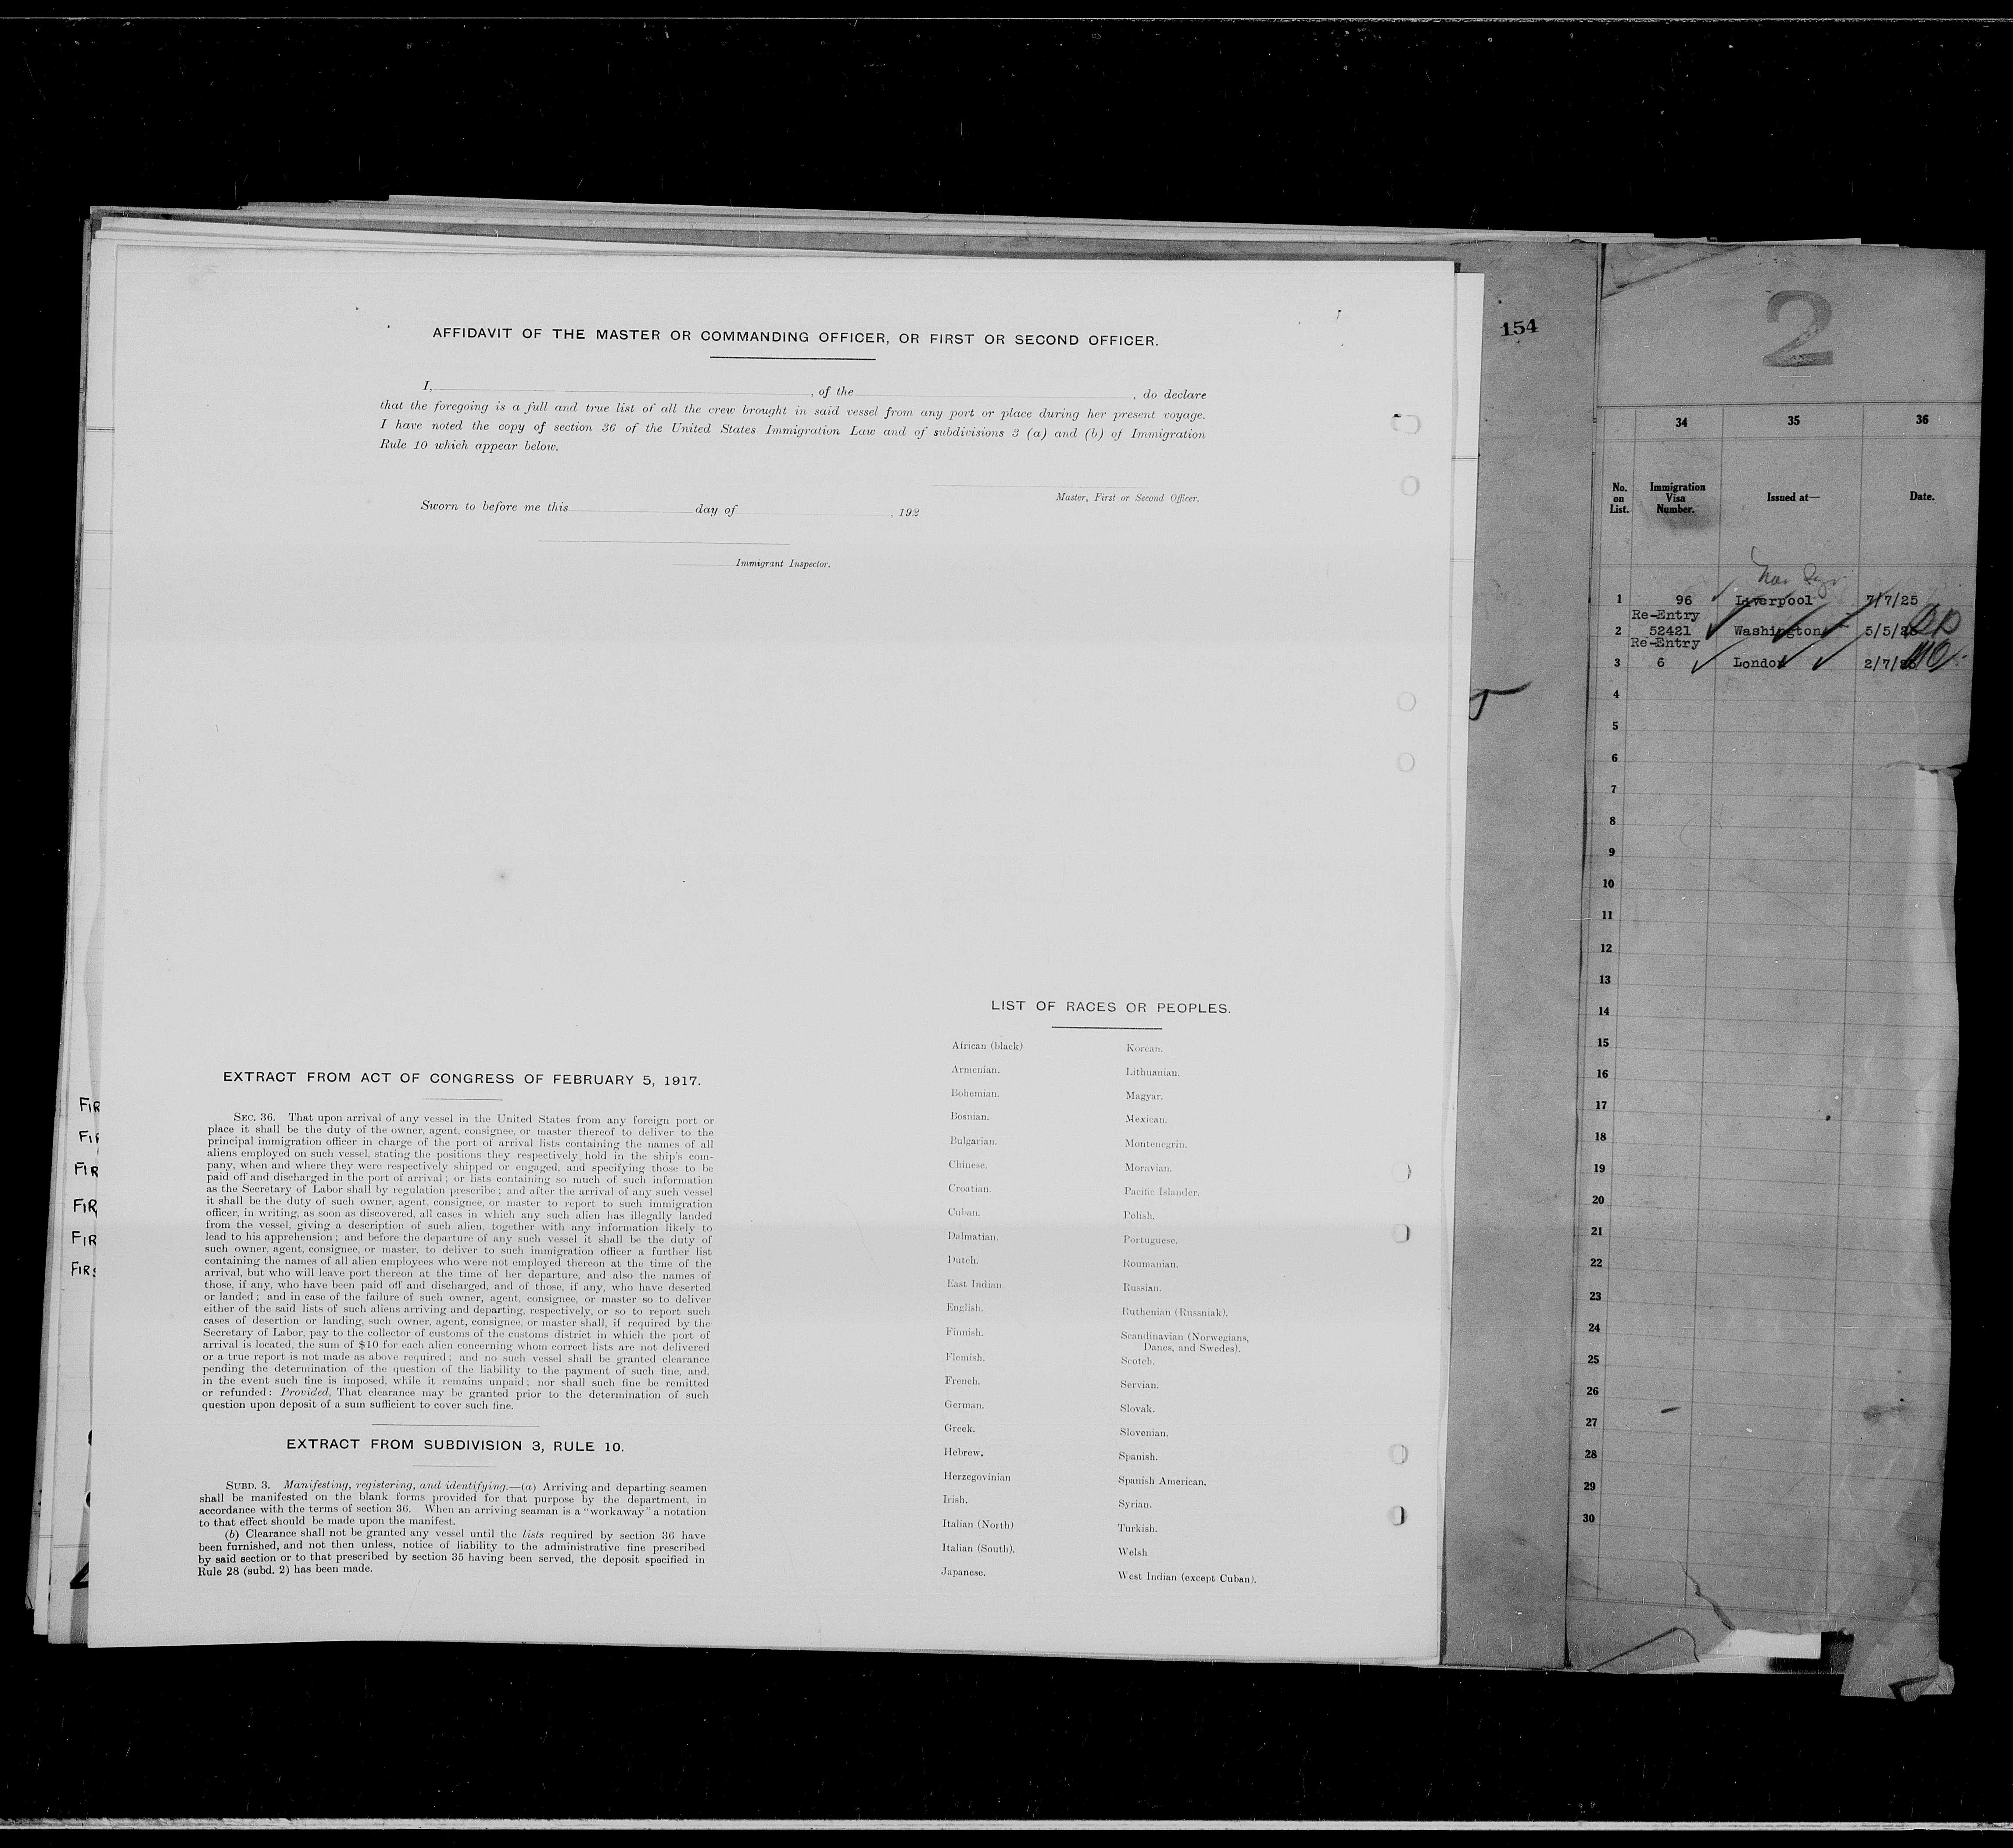 AFFIDAVIT OF THE MASTER OR COMMANDING OFFICER, OR FIRST OR SECOND OFFICER.
I, , of the , do declare
that the foregoing is a full and true list of all the crew brought in said vessel from any port or place during her present voyage.
I have noted the copy of section 36 of the United States Immigration Law and of subdivisions 3 (a) and (b) of Immigration
Rule 10 which appear below.
Master, First or Second Officer.
Sworn to before me this day of , 192
Immigrant Inspector.
EXTRACT FROM ACT OF CONGRESS OF FEBRUARY 5, 1917.
SEC. 36. That upon arrival of any vessel in the United States from any foreign port or
place it shall be the duty of the owner, agent, consignee, or master thereof to deliver to the
principal immigration officer in charge of the port of arrival lists containing the names of all
aliens employed on such vessel, stating the positions they respectively hold in the ship's com-
pany, when and where they were respectively shipped or engaged, and specifying those to be
paid off and discharged in the port of arrival; or lists containing so much of such information
as the Secretary of Labor shall by regulation prescribe; and after the arrival of any such vessel
it shall be the duty of such owner, agent, consignee, or master to report to such immigration
officer, in writing, as soon as discovered, all cases in which any such alien has illegally landed
from the vessel, giving a description of such alien, together with any information likely to
lead to his apprehension; and before the departure of any such vessel it shall be the duty of
such owner, agent, consignee, or master, to deliver to such immigration officer a further list
containing the names of all alien employees who were not employed thereon at the time of the
arrival, but who will leave port thereon at the time of her departure, and also the names of
those, if any, who have been paid off and discharged, and of those, if any, who have deserted
or landed; and in case of the failure of such owner, agent, consignee, or master so to deliver
either of the said lists of such aliens arriving and departing, respectively, or so to report such
cases of desertion or landing, such owner, agent, consignee, or master shall, if required by the
Secretary of Labor, pay to the collector of customs of the customs district in which the port of
arrival is located, the sum of $10 for each alien concerning whom correct lists are not delivered
or a true report is not made as above required; and no such vessel shall be granted clearance
pending the determination of the question of the liability to the payment of such fine, and,
in the event such fine is imposed, while it remains unpaid; nor shall such fine be remitted
or refunded: Provided, That clearance may be granted prior to the determination of such
question upon deposit of a sum sufficient to cover such fine.
EXTRACT FROM SUBDIVISION 3, RULE 10.
SUBD. 3. Manifesting, registering, and identifying.—(a) Arriving and departing seamen
shall be manifested on the blank forms provided for that purpose by the department, in
accordance with the terms of section 36. When an arriving seaman is a "workaway" a notation
to that effect should be made upon the manifest.
(b) Clearance shall not be granted any vessel until the lists required by section 36 have
been furnished, and not then unless, notice of liability to the administrative fine prescribed
by said section or to that prescribed by section 35 having been served, the deposit specified in
Rule 28 (subd. 2) has been made.
LIST OF RACES OR PEOPLES.
African (black)
Armenian.
Bohemian.
Bosnian.
Bulgarian.
Chinese.
Croatian.
Cuban.
Dalmatian.
Dutch.
East Indian
English.
Finnish.
Flemish.
French.
German.
Greek.
Hebrew.
Herzegovinian
Irish.
Italian (North)
Italian (South).
Japanese.
Korean.
Lithuanian.
Magyar.
Mexican.
Montenegrin.
Moravian.
Pacific Islander.
Polish.
Portuguese.
Roumanian.
Russian.
Ruthenian (Rusniak).
Scandinavian (Norwegians,
Danes, and Swedes).
Scotch.
Servian.
Slovak.
Slovenian.
Spanish.
Spanish American.
Syrian.
Turkish.
Welsh
West Indian (except Cuban).
FIR
FIR
FIR
FIR
FIRS
154
2
34 35 36
No. on List. Immigration Visa Number. Issued at— Date.
1 96 Liverpool 7/7/25
Re-Entry
2 52421 Washington 5/5/
Re-Entry
3 6 London 2/7/
4
5
6
7
8
9
10
11
12
13
14
15
16
17
18
19
20
21
22
23
24
25
26
27
28
29
30